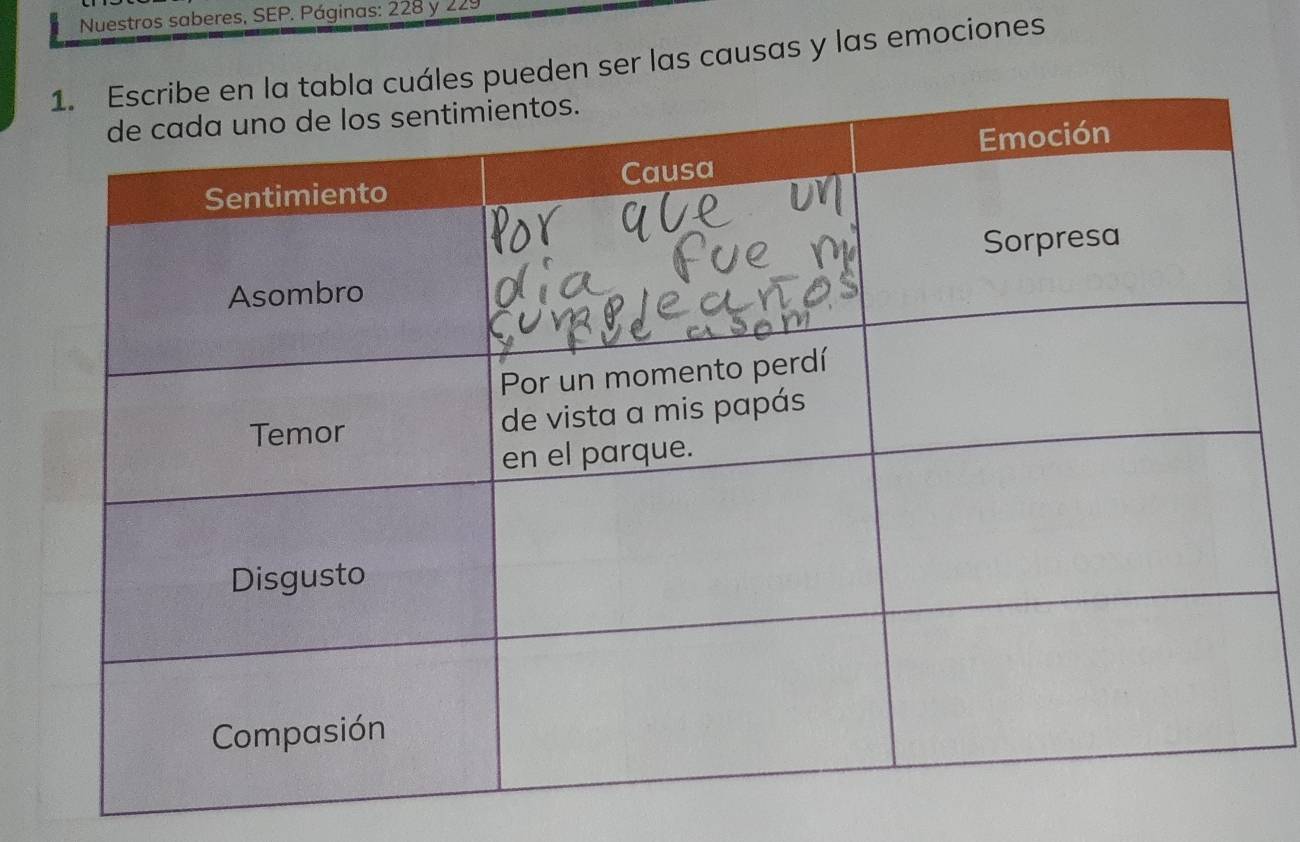 Nuestros saberes, SEP. Páginas: 228 y 229
1. Escribe en la tabla cuáles pueden ser las causas y las emociones
de cada uno de los sentimientos.
Sentimiento Causa Emoción
Asombro
Por que un
día fue mi
cumpleaños
y fue asom
Sorpresa
Temor
Por un momento perdí
de vista a mis papás
en el parque.
Disgusto
Compasión